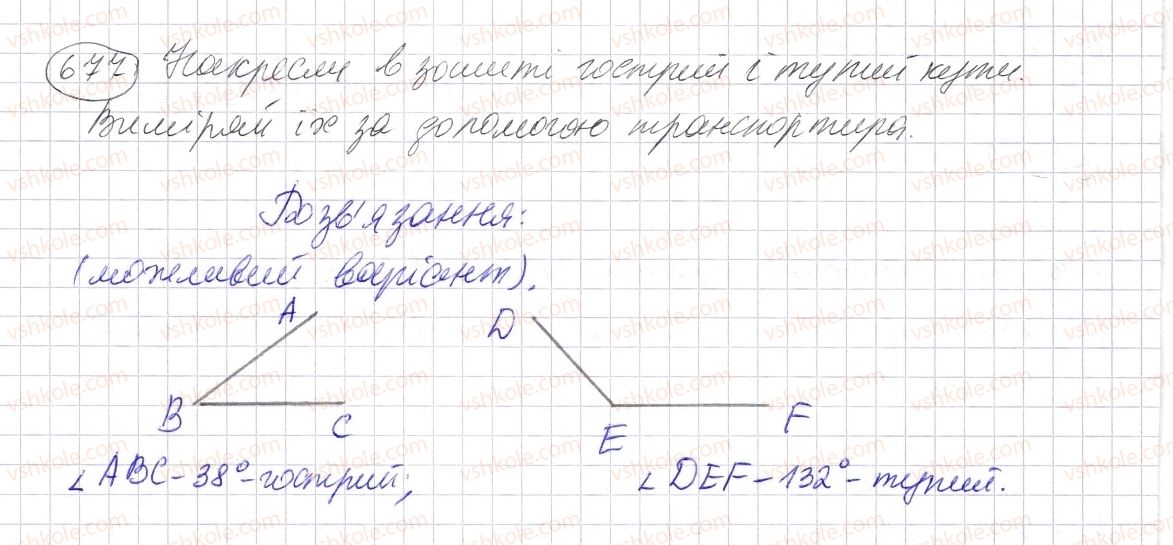 677 Накресли в зошиті гострий і тупий кути.
Виміряй їх за допомогою транспортира.
Розв'язання:
(можливий варіант).
A D
B C E F
∠ABC - 38° - гострий; ∠DEF - 132° - тупий.